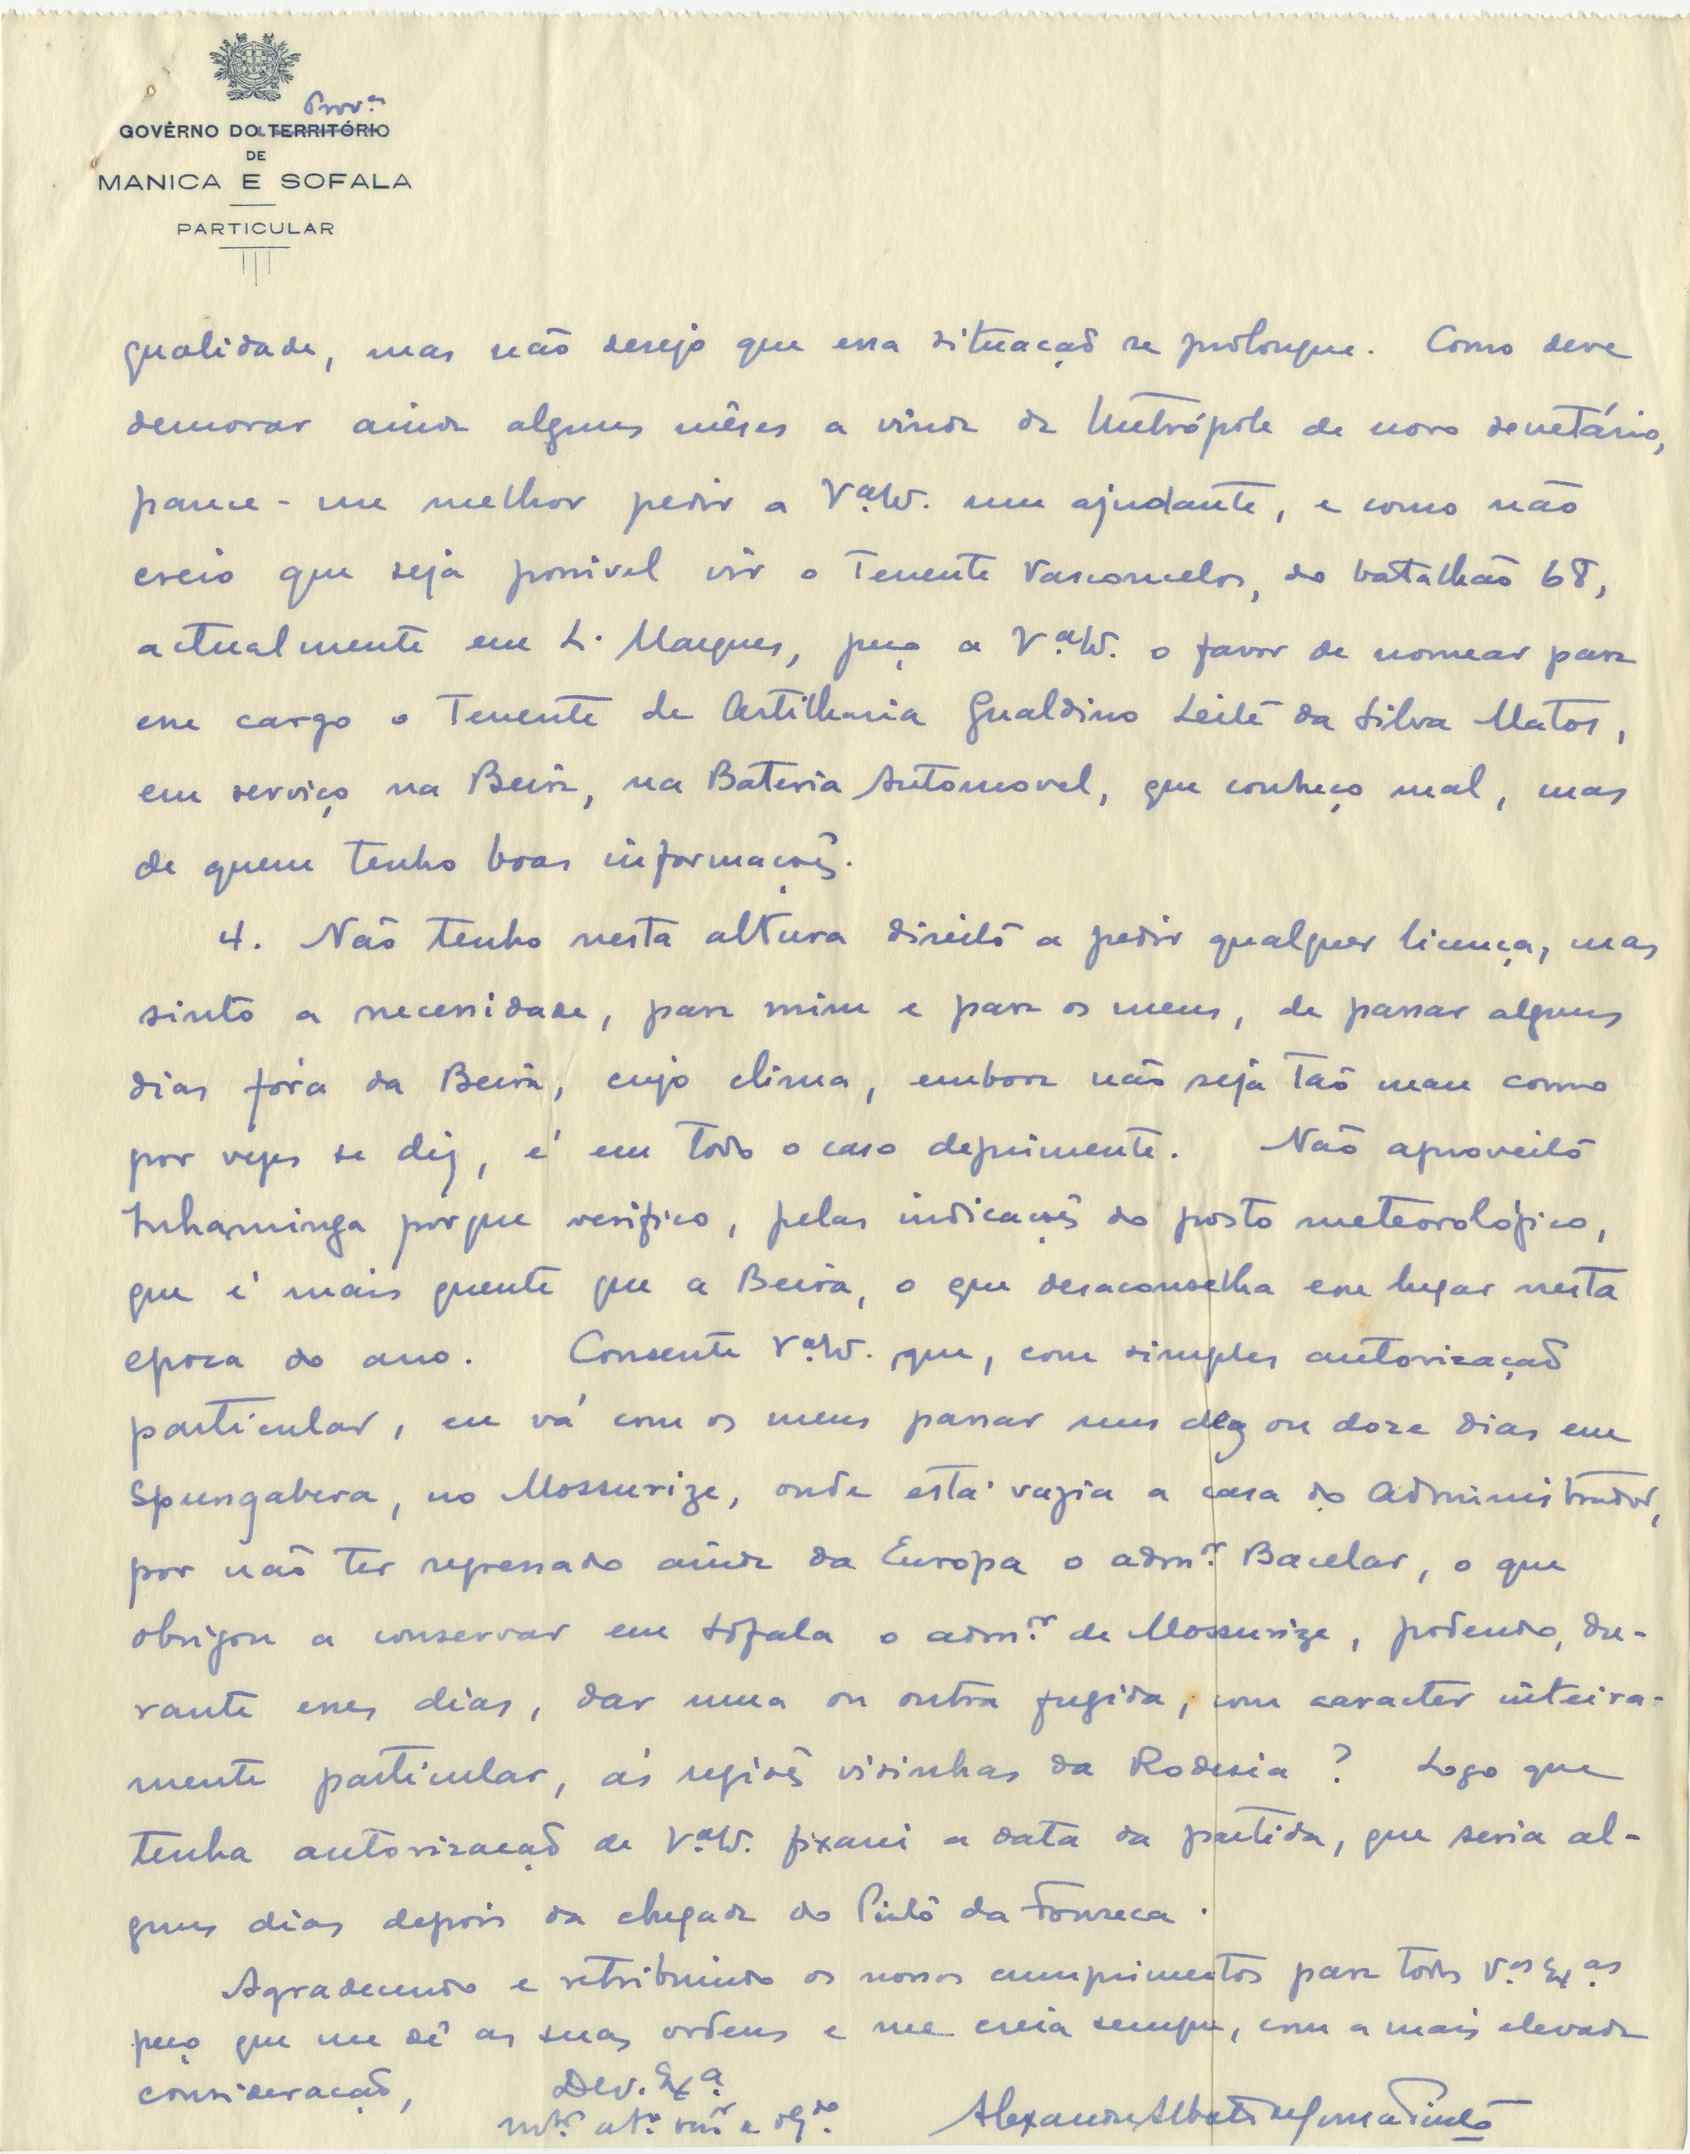 Prov.ª
GOVÊRNO DO TERRITÓRIO
DE
MANICA E SOFALA
PARTICULAR
qualidade, mas não desejo que essa situação se prolongue. Como deve
demorar ainda alguns mêses a vinda da Metrópole de novo secretário,
parece-me melhor pedir a V.ª W. um ajudante, e como não
creio que seja possivel vir o Tenente Vasconcelos, do batalhão 68,
actualmente em L. Marques, peço a V.ª W. o favor de nomear para
esse cargo o Tenente de Artilharia Gualdino Leite da Silva Matos,
em serviço na Beira, na Bateria Automovel, que conheço mal, mas
de quem tenho boas informações.
4. Não tenho nesta altura direito a pedir qualquer licença, mas
sinto a necessidade, para mim e para os meus, de passar alguns
dias fóra da Beira, cujo clima, embora não seja tão mau como
por vezes se diz, é em todo o caso deprimente. Não aproveito
Inhaminga porque verifico, pelas indicações do posto meteorológico,
que é mais quente que a Beira, o que desaconselha esse lugar nesta
epoca do ano. Consente V.ª W. que, com simples autorização
particular, eu vá com os meus passar uns dez ou doze dias em
Spungabera, no Mossurize, onde está vazia a casa do Administrador,
por não ter regressado ainda da Europa o adm.or Bacelar, o que
obrigou a conservar em Sofala o adm.or de Mossurize, podendo, du-
rante esses dias, dar uma ou outra fugida, com caracter inteira-
mente particular, ás regiões visinhas da Rodesia? Logo que
tenha autorização de V.ª W. fixarei a data da partida, que seria al-
guns dias depois da chegada do Pinto da Fonseca.
Agradecendo e retribuindo os nossos cumprimentos para todos V.as Ex.as
peço que me dê as suas ordens e me creia sempre, com a mais elevada
consideração,
De V. Ex.ª
m.to at.o e obg.do
Alexandre